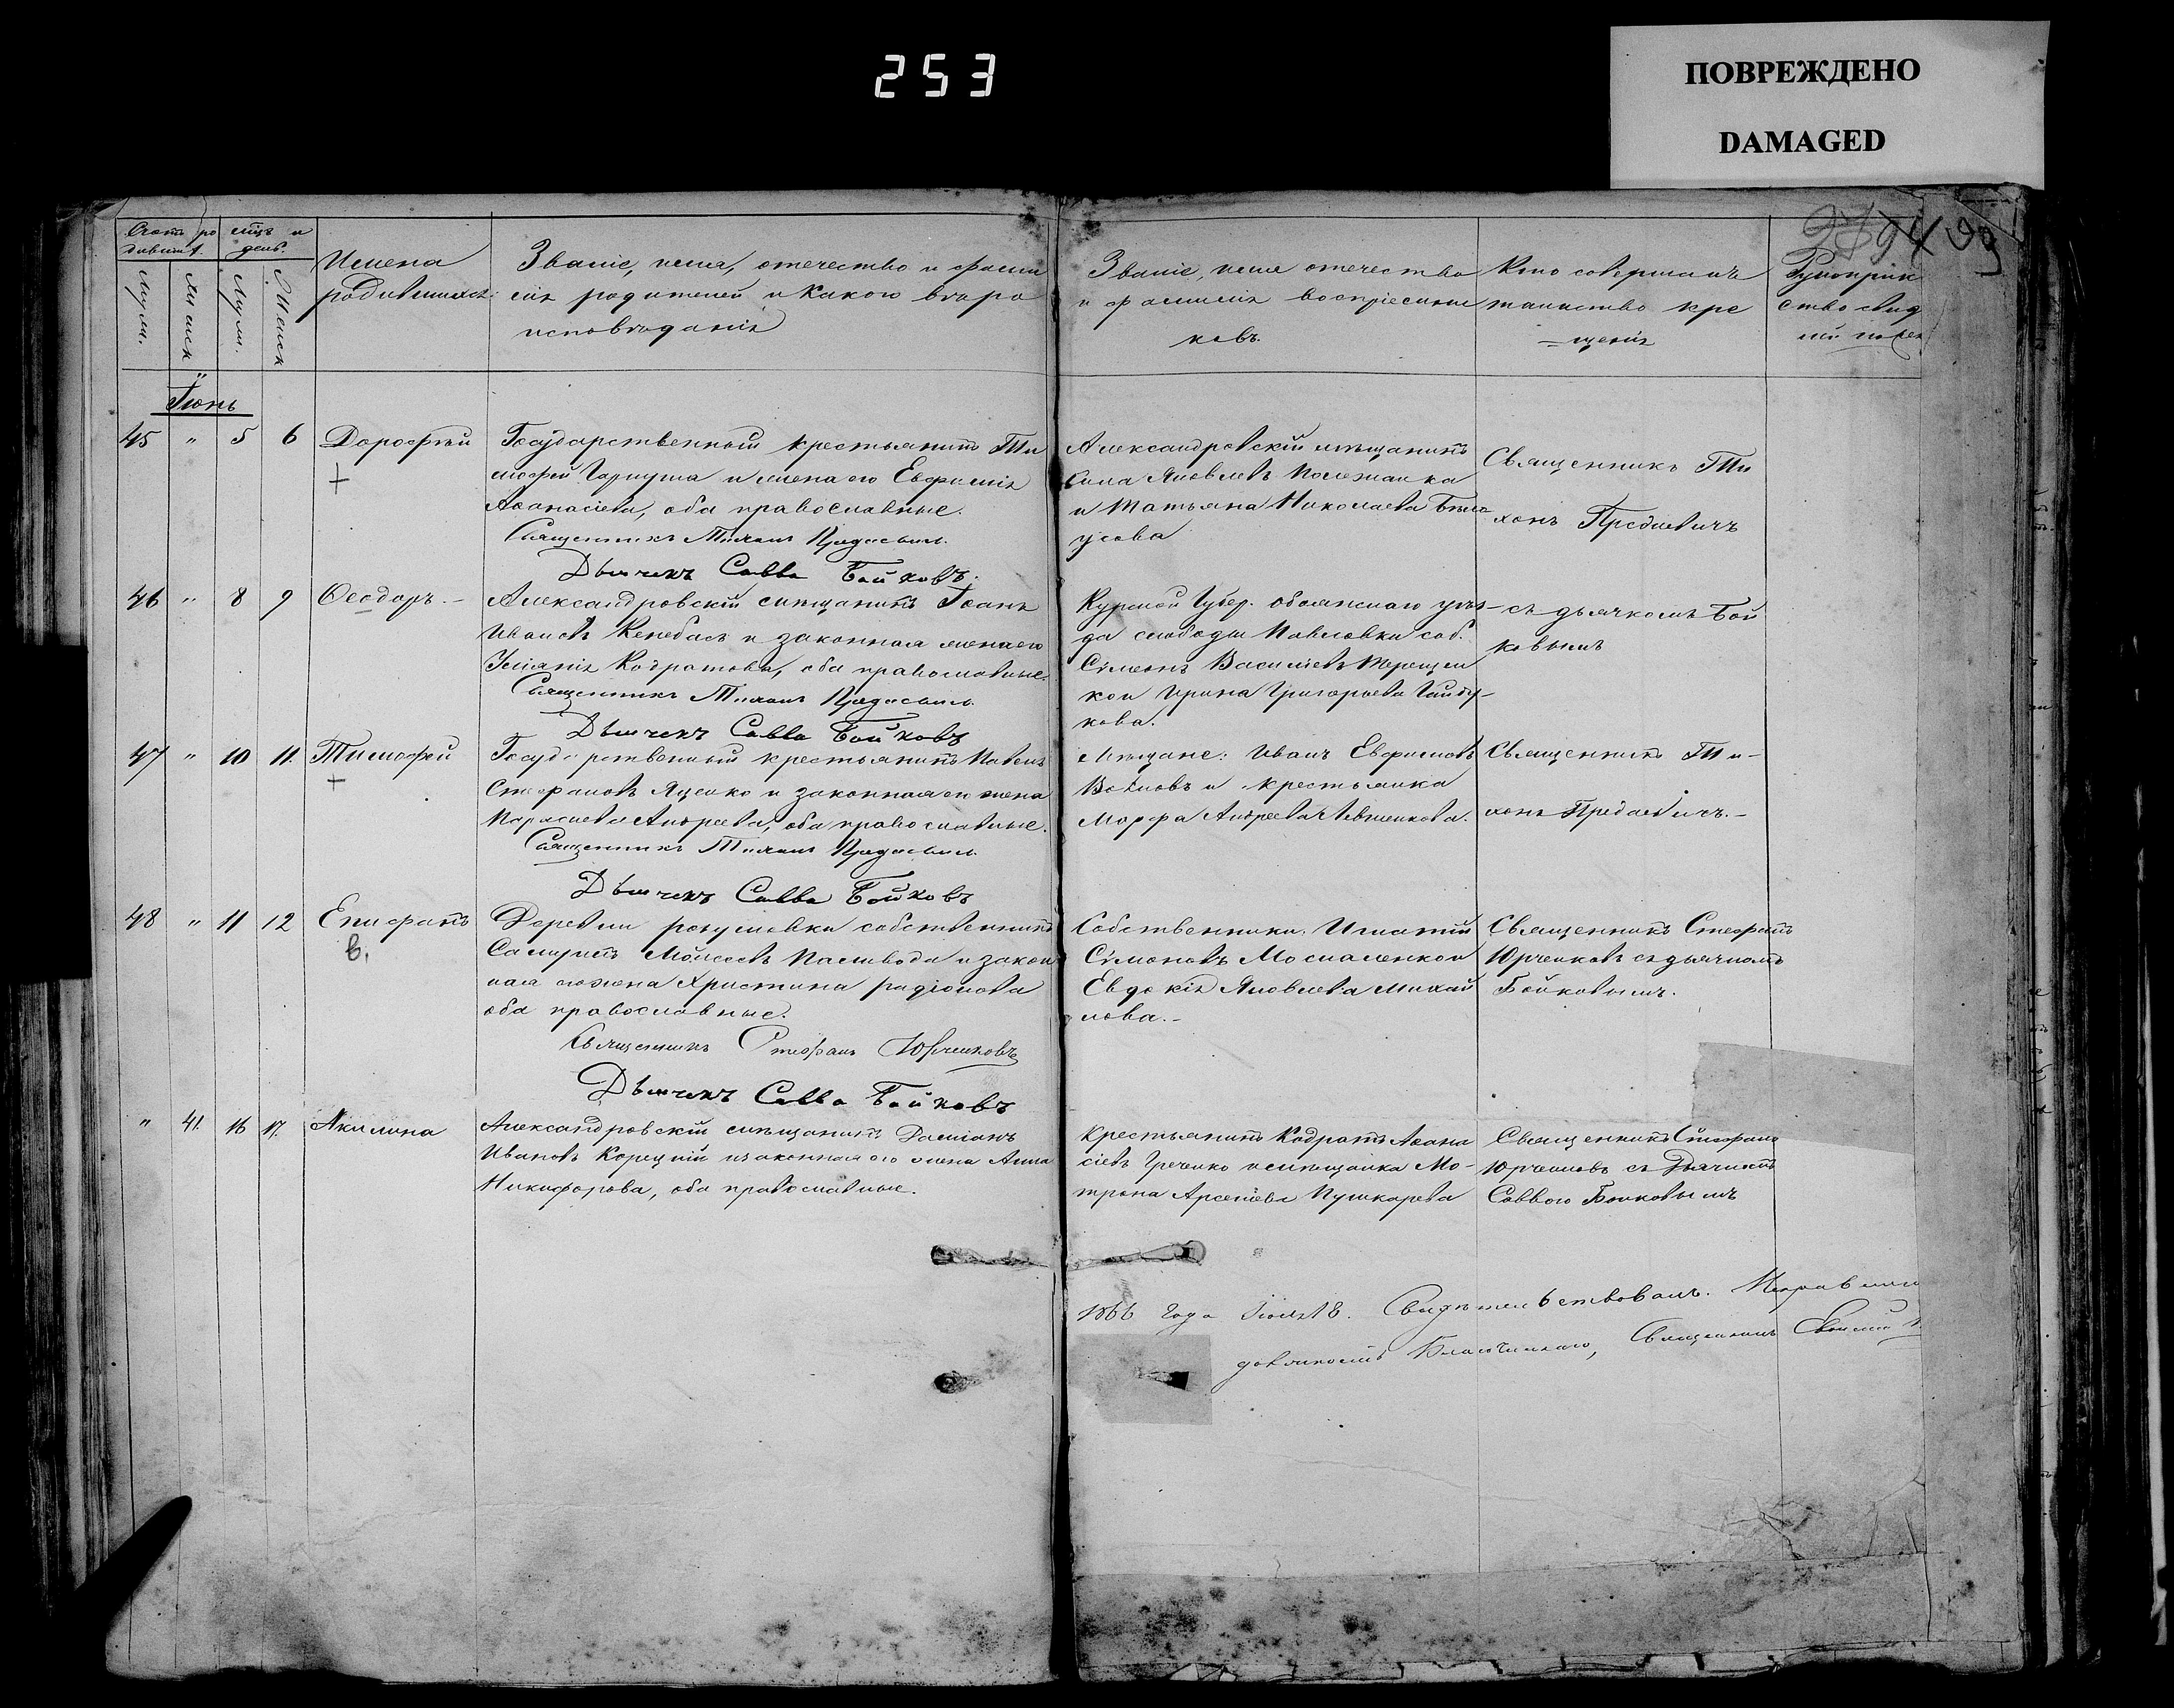 253
ПОВРЕЖДЕНО
DAMAGED
Счетъ ро
дивш.
мѣцъ и
день.
Муж.
Женск
Муж.
Женск
Имена
родившихся
Званіе, имя, отечество и фами
лія родителей и какого вѣро
исповѣданія
Званіе, имя отечество
и фамилія воспріемни
ковъ.
Кто совершалъ
таинство кре
щенія
Рукоприк
ство свид
Іюнь
45 " 5 6 Дорофѣй
Государственный крестьянинъ Ти
мофей Гаркуша и жена его Евфимія
Аѳанасіева, оба православные.
Священникъ Тихонъ Предаевичъ.
Дьячекъ Савва Бойковъ.
Александровскій мѣщанинъ
Сила Яковлевъ
и Татьяна Николаева Бѣло
усова
Священникъ Ти
хонъ Предаевичъ
46 " 8 9 Ѳеодоръ.
Александровскій мѣщанинъ Іоанъ
Ивановъ и законная жена его
Іуліанія Кодратова, оба православные.
Священникъ Тихонъ Предаевичъ.
Дьячекъ Савва Бойковъ
Курской Губер. обоянскаго уѣз-
да слободы Павловки соб.
Сѵмеонъ Василіевъ Терещен
ко и Ирина Григорьева
кова.
съ дьячкомъ Бой
ковымъ
47 " 10 11. Тимофей
Государственный крестьянинъ Павелъ
Стефановъ Яценко и законная его жена
Параскева Андреева, оба православные.
Священникъ Тихонъ Предаевичъ.
Дьячекъ Савва Бойковъ
Мѣщане: Иванъ Евфимовъ
Волковъ и крестьянка
Марфа Андреева Левченкова.
Священникъ Ти-
хонъ Предаевичъ.-
48 " 11 12 Епифанъ
в.
Деревни розумовки собственникъ
Самуилъ Мойсеевъ Паливода и закон
ная его жена Христина радіонова
оба православные.
Священникъ Стефанъ Юрченковъ
Дьячекъ Савва Бойковъ
Собственники. Игнатій
Сѵмоновъ Москаленко и
Евдокія Яковлева Михай
лова.-
Священникъ Стефанъ
Юрченковъ съ дьячкомъ
Бойковымъ.
" 41. 16 17. Акилина
Александровскій мѣщанинъ Даміанъ
Ивановъ Корецкій и законная его жена Анна
Никифорова, оба православные.
Крестьянинъ Кодратъ Аѳана
сіевъ Гречепко и мѣщанка Мо-
трона Арсеніева Пушкарева
Священникъ Стефанъ
Юрченковъ съ Дьячкомъ
Саввою Бойковымъ
1866 года Іюля 18. Свидѣтельствовалъ.
должность Благочиннаго, Священникъ